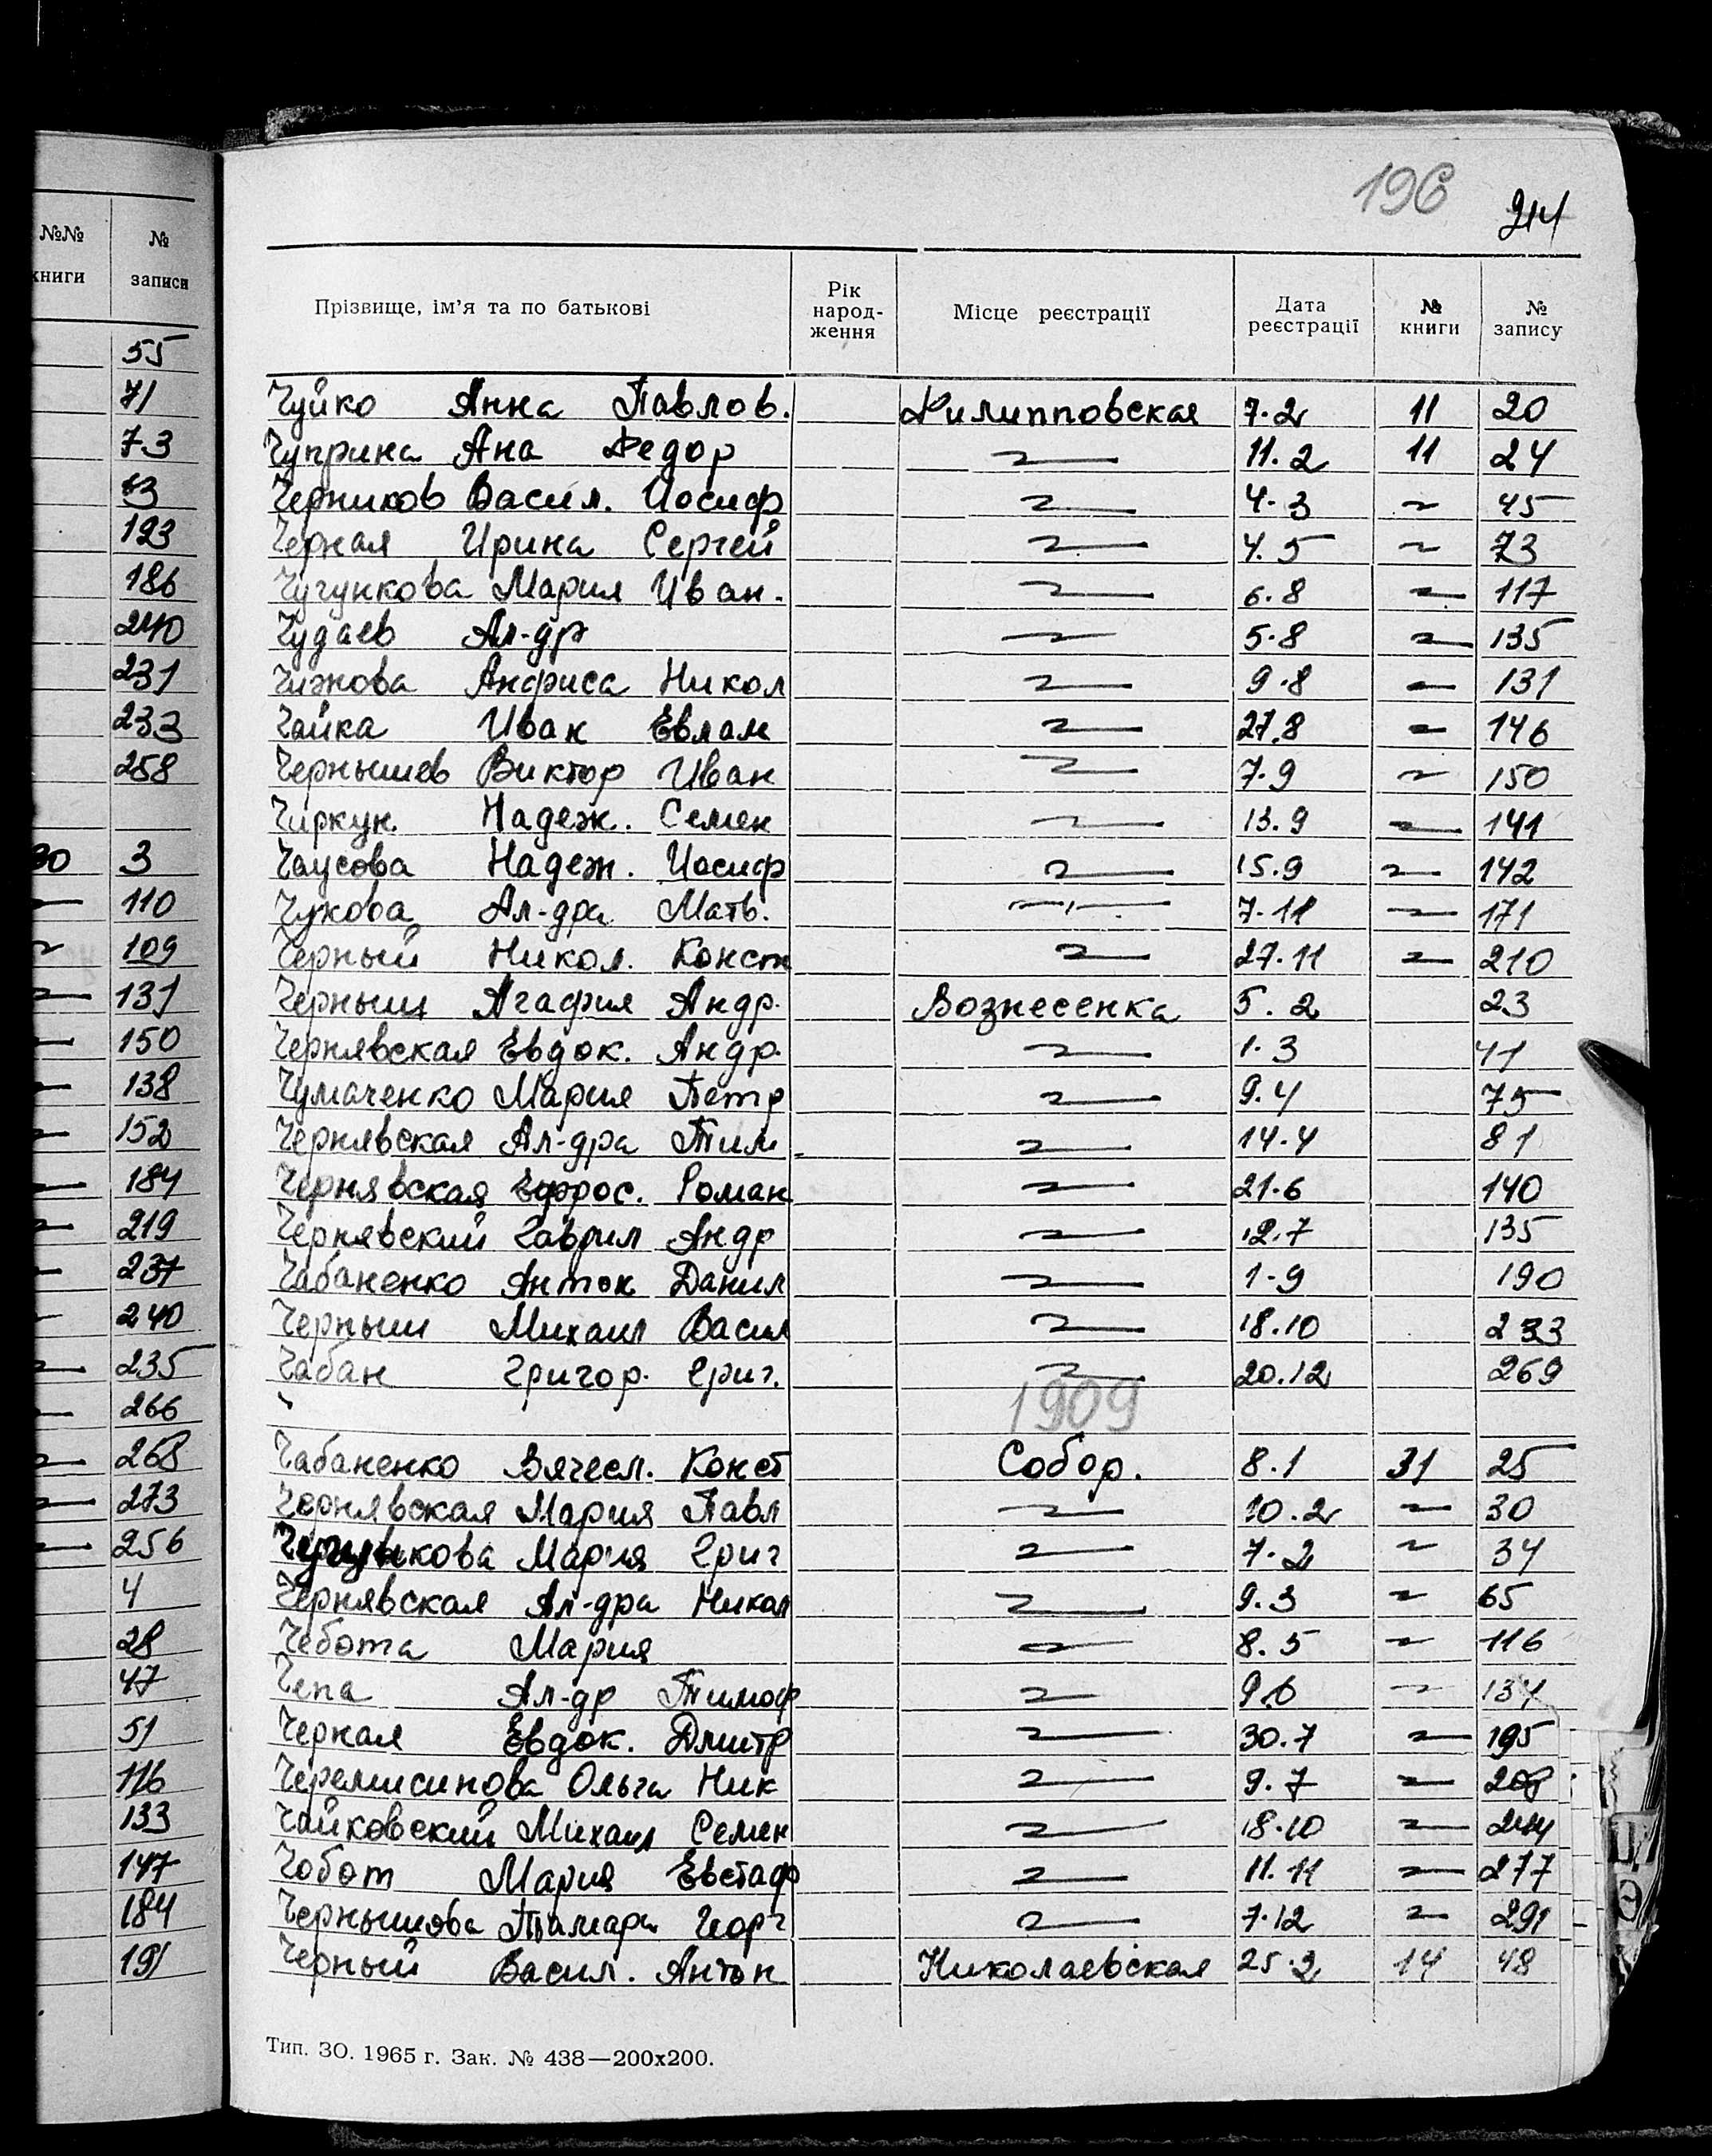 196
214
№№ книги
№ записи
55
71
73
63
123
186
240
231
233
258
30 3
110
109
131
150
138
152
184
219
237
240
235
266
268
273
256
4
28
47
51
116
133
147
184
191
Прізвище, ім'я та по батькові
Рік народ-ження
Місце реєстрації
Дата реєстрації
№ книги
№ запису
Чуйко Анна Павлов. Филипповская 7.2 11 20
Чуприна Ана Федор 11.2 11 24
Черников Васил. Иосиф 4.3 45
Черная Ирина Сергей 4.5 73
Чугункова Мария Иван. 6.8 117
Чудаев Ал-др 5.8 135
Чижова Анфиса Никол 9.8 131
Чайка Иван Евлам 27.8 146
Чернышев Виктор Иван 7.9 150
Чиркун Надеж. Семен 13.9 141
Чаусова Надеж. Иосиф 15.9 142
Чужова Ал-дра Матв. —"— 7.11 171
Черный Никол. Конст 27.11 210
Черныш Агафия Андр. Вознесенка 5.2 23
Чернявская Евдок. Андр. 1.3 41
Чумаченко Мария Петр 9.4 75
Чернявская Ал-дра Тим 14.4 81
Чернявская Ефрос. Роман 21.6 140
Чернявский Гаврил Андр 12.7 135
Чабаненко Антон Данил 1.9 190
Черныш Михаил Васил 18.10 233
Чабан Григор. Григ. 20.12 269
1909
Чабаненко Вячесл. Конст Собор. 8.1 31 25
Чернявская Мария Павл 10.2 30
Чугункова Мария Григ 7.2 34
Чернявская Ал-дра Никол 9.3 65
Чебота Мария 8.5 116
Чепа Ал-др Тимоф 9.6 134
Черная Евдок. Дмитр 30.7 195
Черемисинова Ольга Ник 9.7 208
Чайковский Михаил Семен 18.10 244
Чобот Мария Евстаф 11.11 277
Чернышова Тамара Геор г 7.12 291
Черный Васил. Антон Николаевская 25.2 14 48
Тип. ЗО. 1965 г. Зак. № 438—200х200.